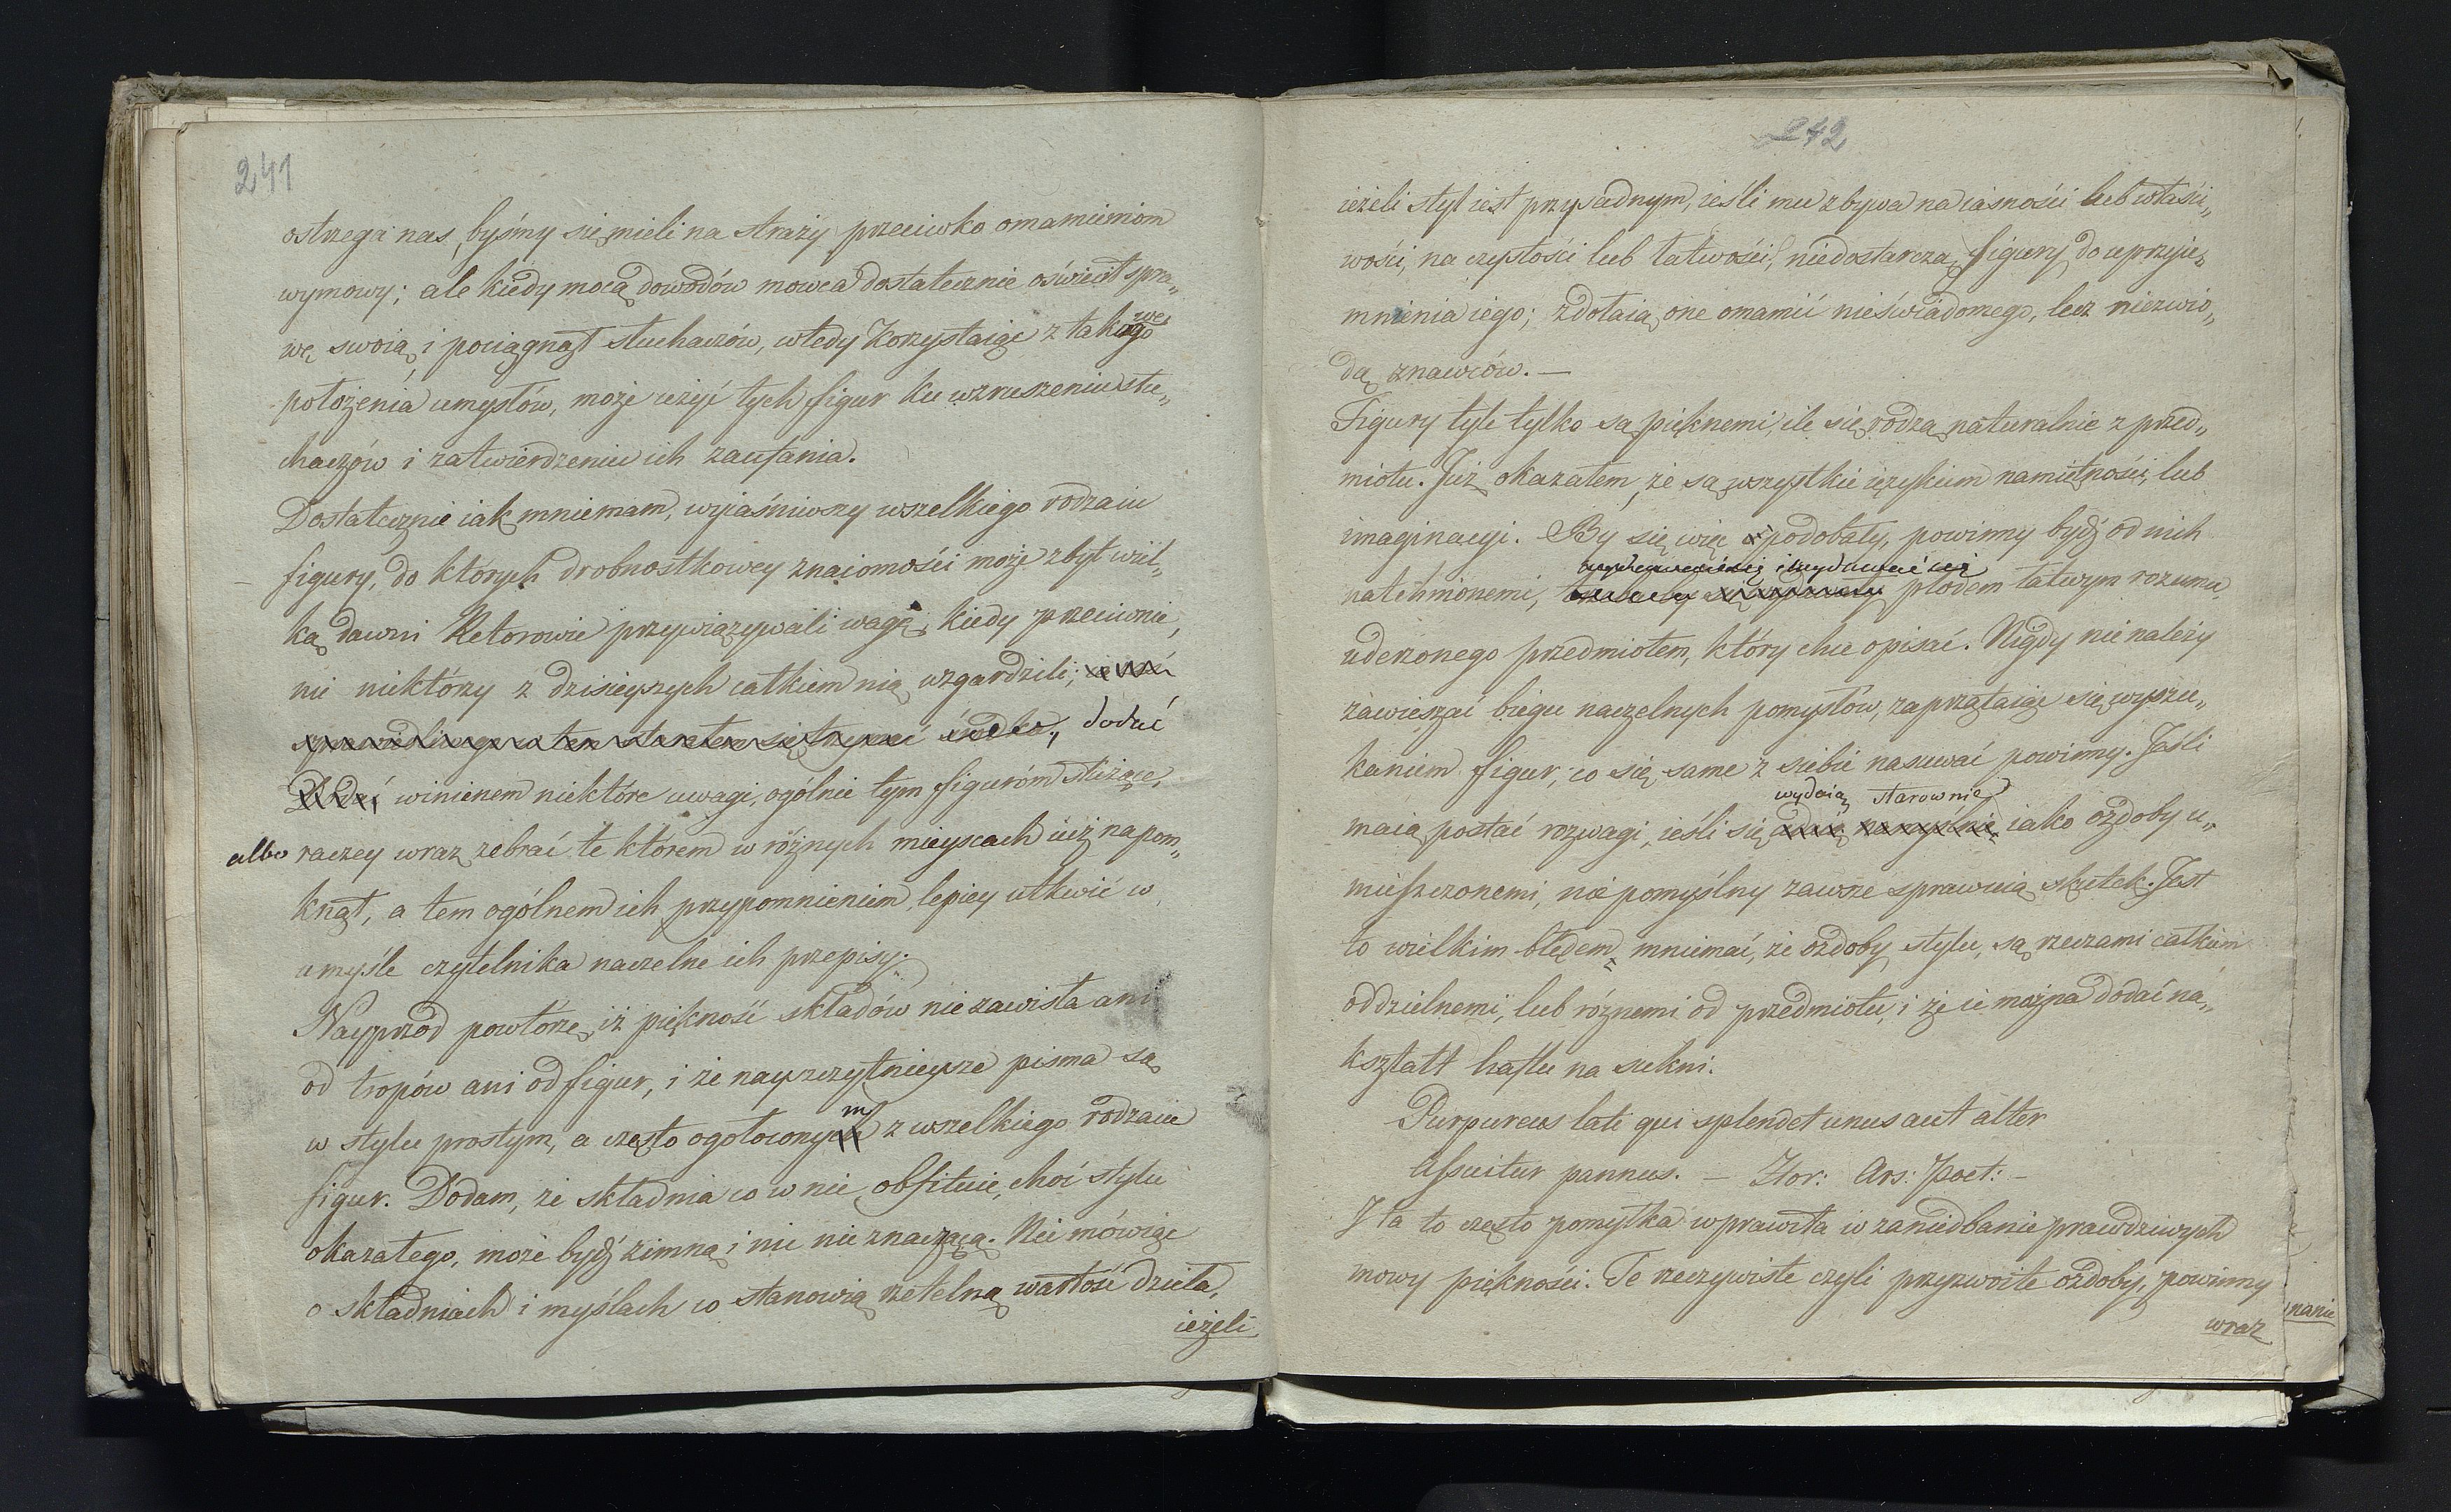 241
ostrega nas, byśmy się mieli na straży przeciwko omamieniom
wymowy; ale kiedy mocą dowodów mowca dostatecznie oświecił spra„
wę swoią, i pociągnął słuchaczów, wtedy korzystaiąc z takiego
położenia umysłów, może użyć tych figur ku wzruszeniu słu„
chaczów i zatwierdzeniu ich zaufania.
Dostatecznie iak mniemam, wyiaśniwszy wszelkiego rodzaiu
figury, do których drobnostkowey znaiomości może zbyt wiel„
ką dawni Retorowie przywiązywali wagę, kiedy przeciwnie,
nie niektórzy z dzisieyszych całkiem nią wzgardzili;
sprawiedliwego w tem starałem się trzymać środka, dodać
Dodać winienem niektóre uwagi, ogólnie tym figuróm służące,
albo raczey wraz zebrać te którem w różnych mieyscach iuż napom„
knął, a tem ogólnem ich przypomnieniem, lepiey utkwić w
umyśle czytelnika naczelne ich przepisy.
Nayprzod powtórzę, iż piękność składów nie zawisła ani
od tropów ani od figur, i że nayszczytnieysze pisma są
m
w stylu prostym, a często ogołoconych z wszelkiego rodzaiu
figur. Dodam, że składnia co w nie obfituie, choć stylu
okazałego, może bydź zimną i nic nie znaczącą. Nie mówiąc
o składniach i myślach co stanowią rzetelną wartość dzieła,
ieżeli
242
ieżeli styl iest przysadnym, ieśli mu zbywa na iasności lub właści„
wości, na czystości lub łatwości, niedostarczą figury do uprzyie„
mnienia iego; zdołaią one omamić nieświadomego, lecz niezwio„
dą znawców. —
Figury tyle tylko są pięknemi, ile się rodzą naturalnie z przed„
miotu. Już okazałem, że są wszystkie ięzykiem namiętności, lub
imaginacyi. By się więc podobały, powinny bydź od nich
i wydawać się
natchnionemi, płodem łatwym rozumu
uderzonego przedmiotem, który chce opisać. Nigdy nie należy
zawieszać biegu naczelnych pomysłów, zaprzątaiąc się wyszu„
kaniem figur, co się same z siebie nasuwać powinny. Jeśli
wydaią starownie
maią postać rozwagi, ieśli się zdaią namyślnie iako ozdoby u„
mieszczonemi, nie pomyślny zawsze sprawuią skutek. Jest
to wielkim błędem, mniemać, że ozdoby stylu, są rzeczami całkiem
oddzielnemi, lub róznemi od przedmiotu, i że ie można dodać na„
kształt haftu na sukni.
Purpureus late qui splendet unus aut alter
Assuitur pannus. — Hor: Ars: Poet: —
I ta to często pomyłka wprawiła w zaniedbanie prawdziwych
mowy piękności. Te rzeczywiste czyli przyzwoite ozdoby, powinny
wraz
nanie